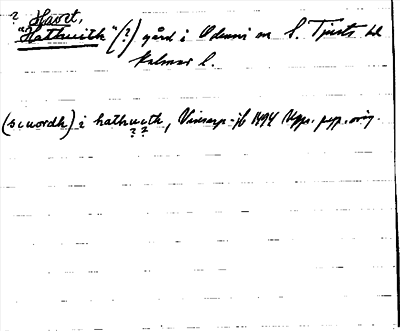 ? Havit,
"Hathwith" (?) gård i Odensvi sn S. Tjusts hd
Kalmar l.
(siuordh) i hathwith, Vinsarp-jb 1494 Upps. perg. orig.
? ?